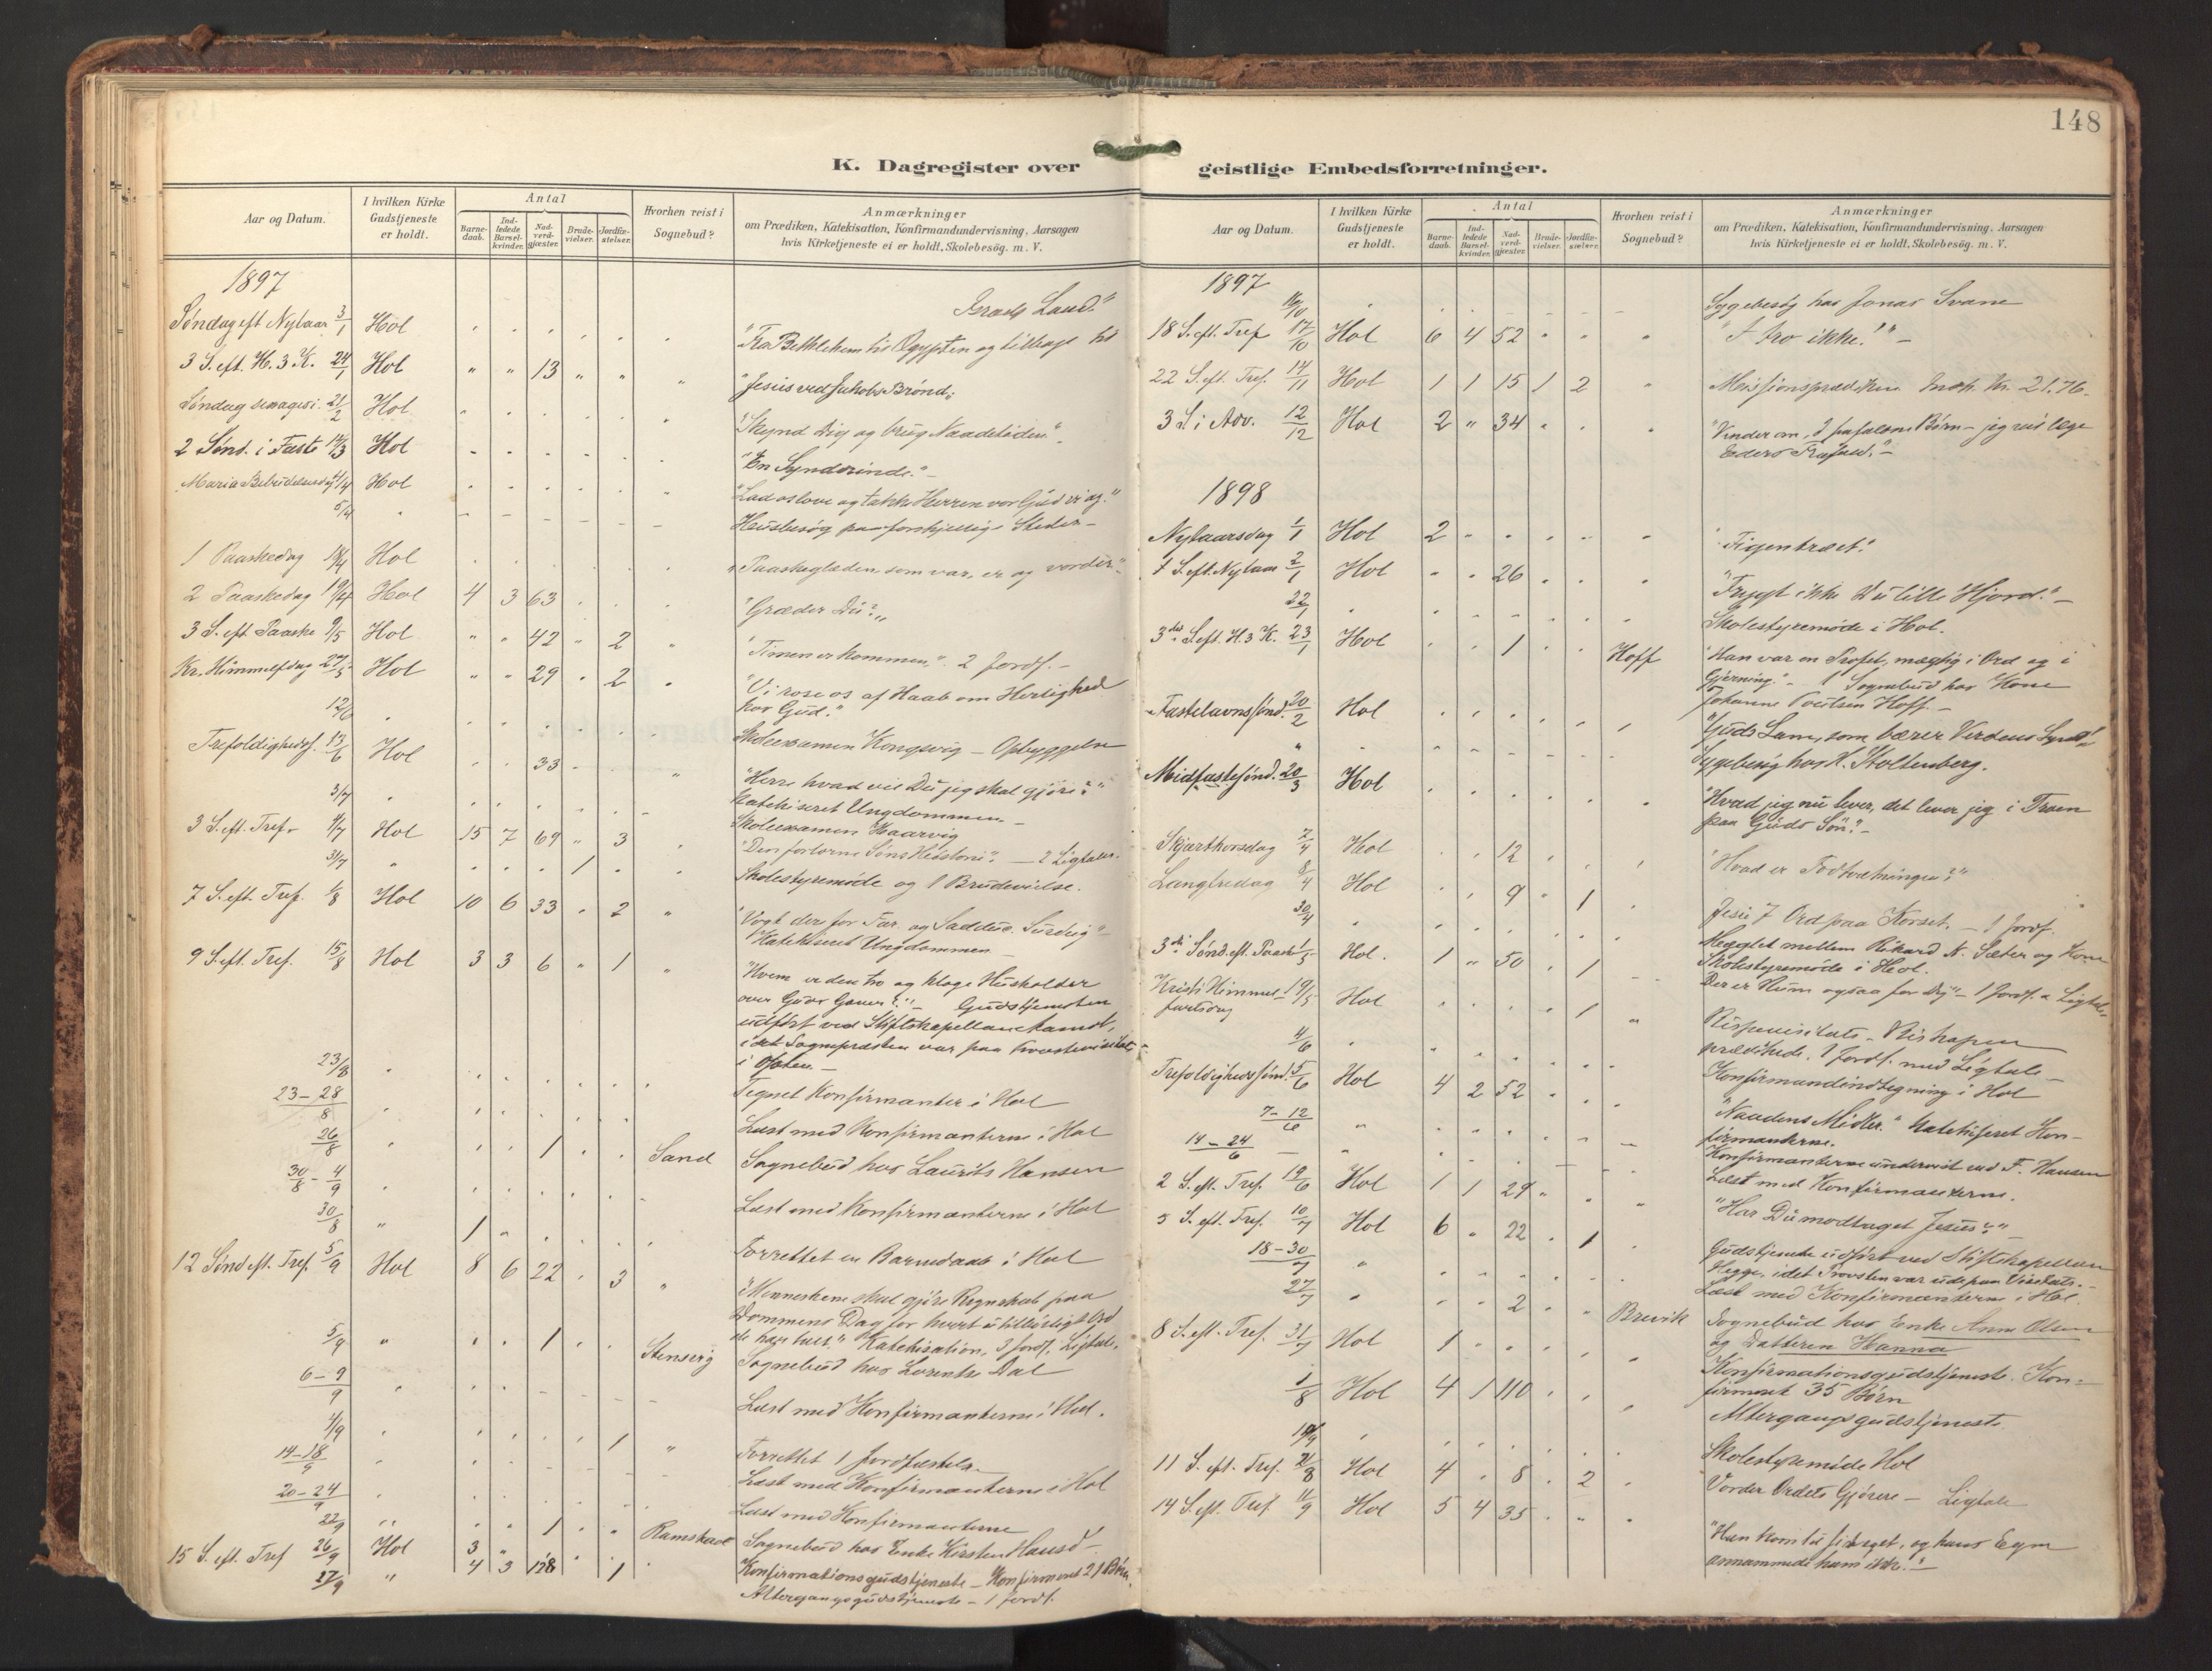 148
K. Dagregister over
Aar og Datum.
I hvilken Kirke Gudstjeneste er holdt.
Antal
Barnedaab.
Indledede Barselkvinder.
Nadverdgjæster.
Brudevielser.
Jordfæstelser.
Hvorhen reist i Sognebud?
Anmærkninger
om Prædiken, Katekisation, Konfirmandundervisning, Aarsagen
hvis Kirketjeneste ei er holdt, Skolebesög. m. V.
1897
Israels Land."
Søndag eft Nytaar 3/1 Hol " " " " " " "Fra Bethlehem til Ægypten og tilbage til
3 S. eft. H. 3 K. 24/1 Hol " " 13 " " " "Jesus ved Jakobs Brønd"
Søndag sexages. 21/2 Hol " " " " " " "Skynd Dig og brug Naadetiden."
2 Sønd. i Faste 14/3 Hol " " " " " " "En Synderinde."
Maria Bebudelsesdag 4/4 Hol " " " " " " "Lad os love og takke Herren vor Gud
5/4 " Husbesøg paa forskjellige Steder –
1 Paaskedag 18/4 Hol " " " " " " "Paaskeglæden, som var, er og vorder."
2 Paaskedag 19/4 Hol 4 3 63 " " " "Græder Du?"
3 S. eft Paaske 9/5 Hol " " 42 " 2 " "Timen er kommen." 2 Jordf. –
Kr. Himmelfdag 27/5 Hol " " 29 " 2 " "Vi rose os af Haab om Herlighed
hos Gud."
12/6 " Skoleexamen Kongsvig – Opbyggelse
Trefoldighedsf. 13/6 Hol " " 33 " " " "Herre hvad vil Du jeg skal gjøre?"
Katekiseret Ungdommen –
3/7 " Skoleexamen Haarvig
3 S. eft. Tref. 4/7 Hol 15 7 69 " 3 " "Den fortorne Søns Historie". – 2 Ligtaler.
31/7 " " " " 1 " " Skolestyremøde og 1 Brudevielse.
7 S. eft. Tref. 1/8 Hol 10 6 33 " 2 " "Vogt der for Far. og Saddus. Surdeig" –
Katekiseret Ungdommen –
9 S. eft. Tref. 15/8 Hol 3 3 6 " 1 " "Hvem er den tro og kloge Husholder
over Guds Gaver?" – Gudstjenesten
udført ved Stiftskapellan
idet Sognepræsten var paa Provstevisitats
i Ofoten. –
23/8 " Tegnet Konfirmanter i Hol
23–28/8 " Læst med Konfirmanterne i Hol
26/8 " " " 1 " " Sand Sognebud hos Laurits Hansen
30/8 – 4/9 " Læst med Konfirmanterne i Hol
30/8 " 1 " " " " Forrettet en Barnedaab i Hol
12 Sønd eft. Tref. 5/9 Hol 8 6 22 " 3 " "Menneskene skal gjøre Regnskab paa
Dommens Dag for hvert utilbørligt Ord
de har talt." Katekisation, 3 Jordf. Ligtale.
5/9 " " " 1 " " Stensvig Sognebud hos Lorentse Dal
6–9/9 " Læst med Konfirmanterne i Hol.
11/9 " " " " " 1 " Forrettet 1 Jordfæstelse
14–18/9 " Læst med Konfirmanterne i Hol
20–24/9 " Læst med Konfirmanterne
22/9 " " " 1 " " Ramstad Sognebud hos Enke Kirsten Hansd –
15 S. eft. Tref 26/9 Hol 3 " Konfirmationsgudstjeneste – Konfirmeret 21 Børn.
27/9 " 4 3 128 " 1 Altergangsgudstjeneste – 1 Jordf.
geistlige Embedsforretninger.
Aar og Datum.
I hvilken Kirke Gudstjeneste er holdt.
Antal
Barnedaab.
Indledede Barselkvinder.
Nadverdgjæster.
Brudevielser.
Jordfæstelser.
Hvorhen reist i Sognebud?
Anmærkninger
om Prædiken, Katekisation, Konfirmandundervisning, Aarsagen
hvis Kirketjeneste ei er holdt, Skolebesög. m. V.
1897
16/10 " Sygebesøg hos Jonas Svane
18 S. eft. Tref 17/10 Hol 6 4 52 " " " "I tro ikke!" –
22 S. eft. Tref. 14/11 Hol 1 1 15 1 2 " Missionsprædiken Indk. Kr. 21.76.
3 S. i Adv. 12/12 Hol 2 " 34 " " " "Vender om, I frafaldne Børn – jeg vil læge
Eders Frafald." –
1898
Nytaarsdag 1/1 Hol 2 " " " " " "Figentræet."
1 S. eft. Nytaar 2/1 Hol " " 26 " " " "Frygt ikke Du lille Hjord." –
22/1 " Skolestyremøde i Hol.
3die S. eft. H. 3 K. 23/1 Hol " " 1 " " Hoff "Han var en Profet, mægtig i Ord og i
Gjerning." – 1 Sognebud hos Kone
Johanne Poulsen Hoff. –
Fastelavnssønd. 20/2 Hol " " " " " " "Guds Lam, som bærer Verdens Synd."
" Sygebesøg hos H. Stoltenberg.
Midfastesønd. 20/3 Hol " " " " " " "Hvad jeg nu lever, det lever jeg i Troen
paa Guds Søn." –
Skjærthorsdag 7/4 Hol " " 12 " " " "Hvad er Fodtvætningen?"
Langfredag 8/4 Hol " " 9 " 1 " Jesu 7 Ord paa Korset. – 1 Jordf.
30/4 " Mægglet mellem Rikard N. Sæter og Kone
Skolestyremøde i Hol.
3die Sønd. eft. Paaske 1/5 Hol. 1 " 50 " 1 – Der er Rum ogsaa for dig" – 1 Jordf. & Ligtale
Kristi Himmel- 19/5 Hol " " " " 1 " Bispevisitats. – Biskopen
fartsdag
prædikede. 1 Jordf. med Ligtale –
4/6 " Konfirmandindtegning i Hol
Trefoldighedssønd. 5/6 Hol 4 2 52 " " " "Naadens Midler." Katekiseret Kon-
firmanterne.
7–12/6 " Konfirmanterne undervist ved F. Hansen
14–24/6 – " Læst med Konfirmanterne.
2 S. eft. Tref. 19/6 Hol 1 1 29 " " " "Har Du modtaget Jesus?" –
5 S. eft. Tref. 10/7 Hol 6 " 22 " 1 " Gudstjeneste udført ved Stiftskapellan
Hegge, idet Provsten var ude paa Visitats. –
18–30/7 " Læst med Konfirmanterne i Hol.
27/7 " " " 2 " " Brevik Sognebud hos Enke Anne Olsen
og Datteren Hanna
8 S. eft. Tref. 31/7 Hol 1 " " " " " Konfirmationsgudstjeneste. Kon-
firmeret 35 Børn
1/8 Hol 4 1 110 " " " Altergangsgudstjeneste
" Skolestyremøde Hol
11 S. eft. Tref. 21/8 Hol 4 " 8 " 2 " Vorder Ordets Gjørere – Ligtale
14 S. eft. Tref. 11/9 Hol 5 4 35 " " " "Han kom til sit eget, og hans Egne
annammede ham ikke." –